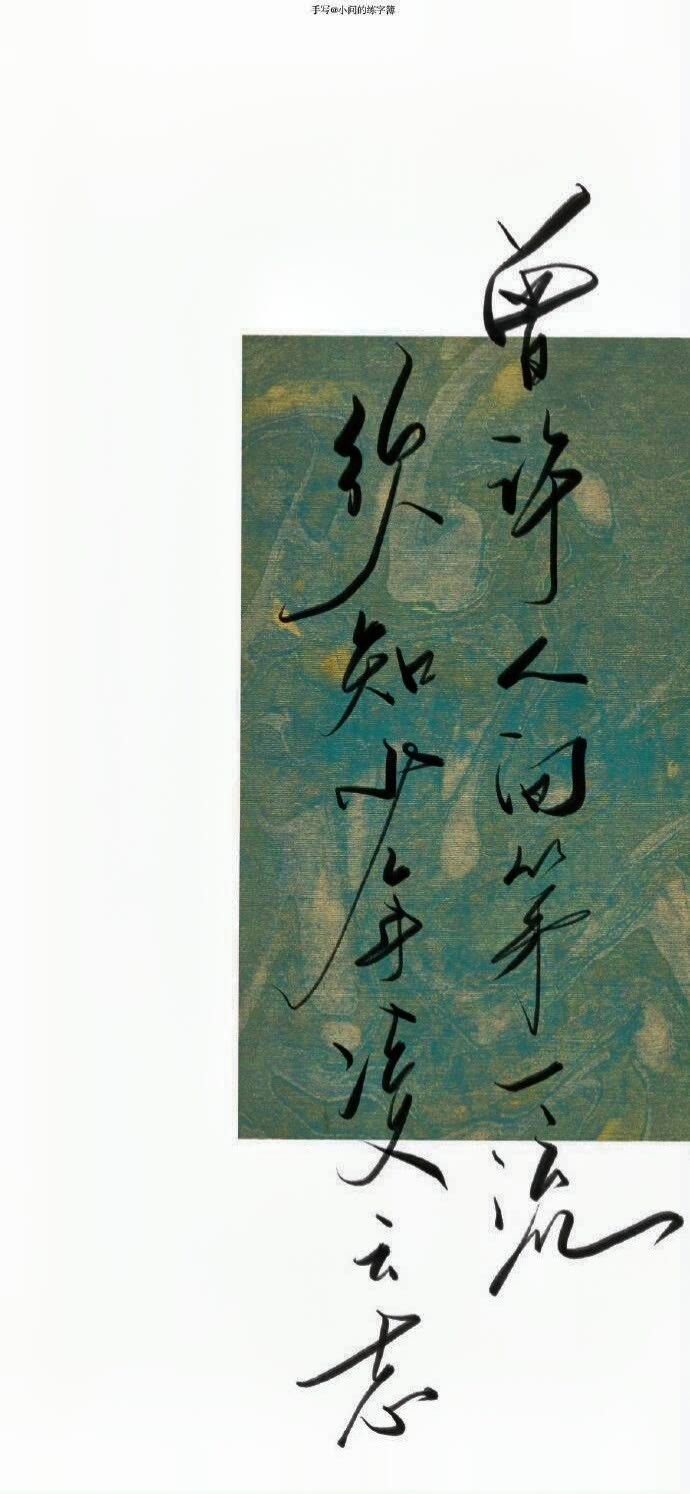 手写@小问的练字簿
曾许人间第一流
须知少年凌云志